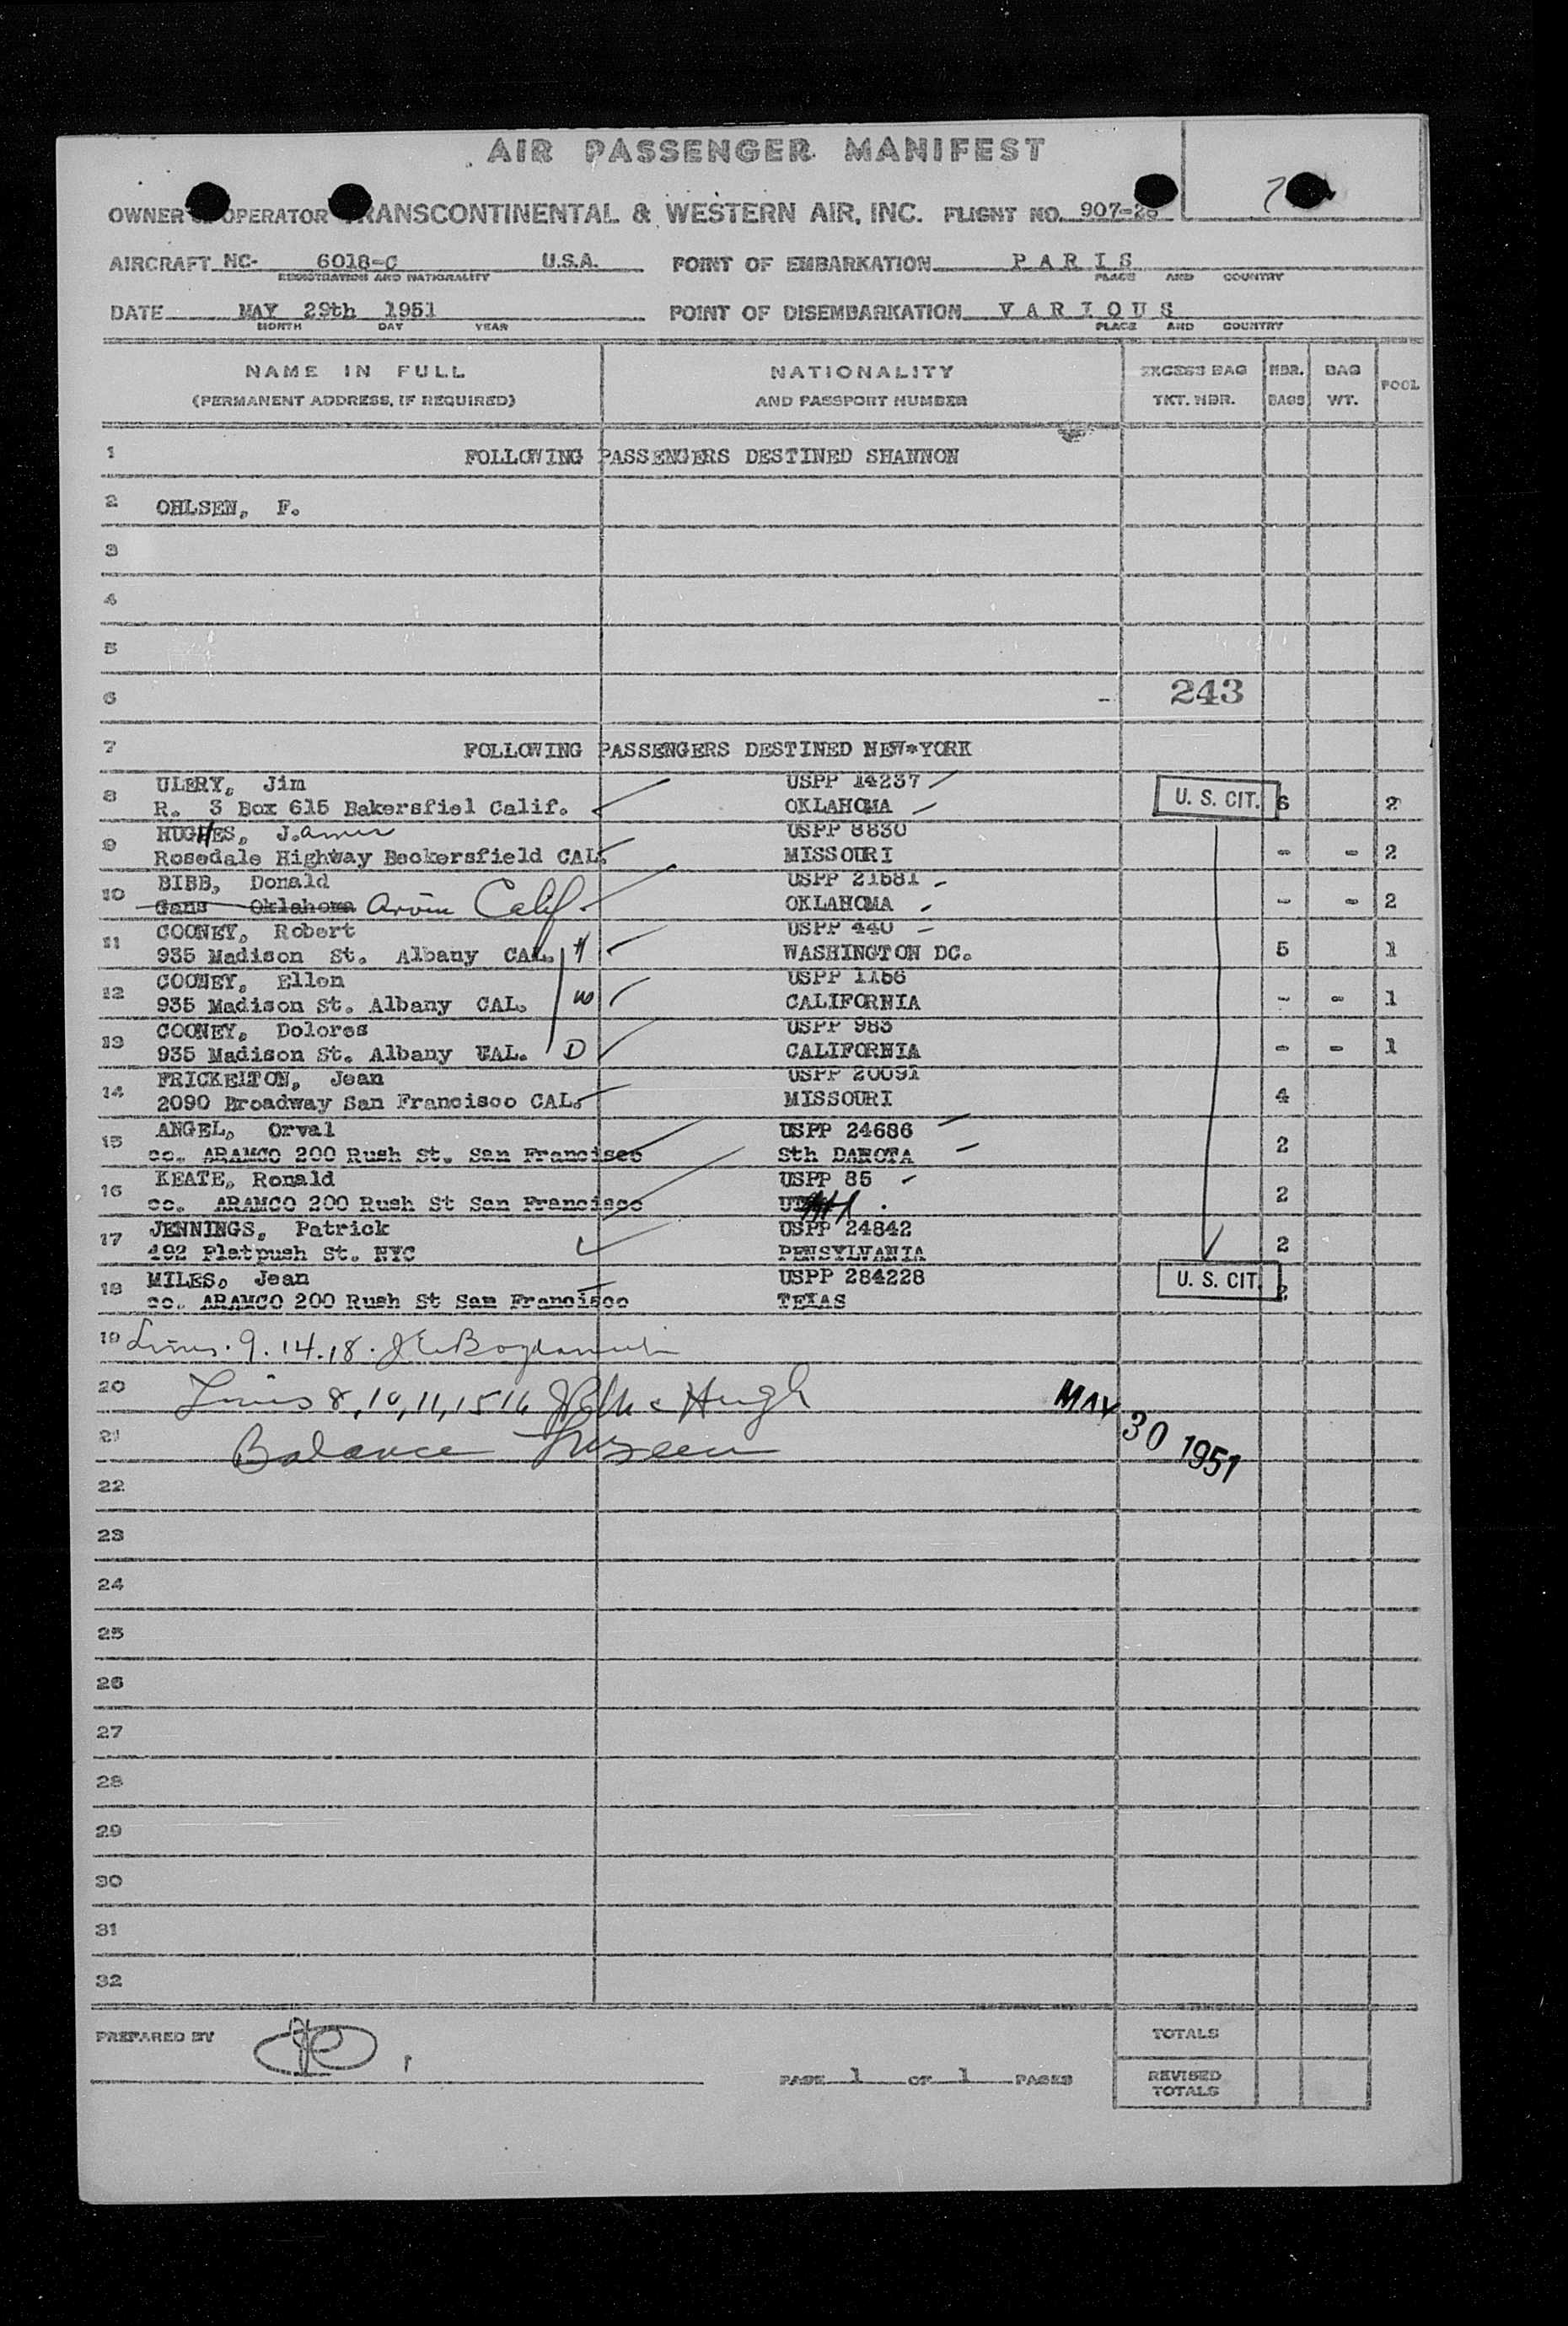 AIR PASSENGER MANIFEST
OWNER OPERATOR TRANSCONTINENTAL & WESTERN AIR, INC. FLIGHT NO. 907-28
7
AIRCRAFT NC- 6018-C U.S.A. POINT OF EMBARKATION PARIS
REGISTRATION AND NATIONALITY PLACE AND COUNTRY
DATE MAY 29th 1951 POINT OF DISEMBARKATION VARIOUS
MONTH DAY YEAR PLACE AND COUNTRY
NAME IN FULL NATIONALITY EXCESS BAG NBR. BAG POOL
(PERMANENT ADDRESS, IF REQUIRED) AND PASSPORT NUMBER TKT. NBR. BAGS WT.
1 FOLLOWING PASSENGERS DESTINED SHANNON
2 OHLSEN, F.
3
4
5
6 - 243
7 FOLLOWING PASSENGERS DESTINED NEW*YORK
8 ULERY, Jim USPP 14237
R. 3 Box 615 Bakersfiel Calif. OKLAHOMA U. S. CIT. 6 2
9 HUGHES, James USPP 8830
Rosedale Highway Beckersfield CAL. MISSOURI - - 2
10 BIBB, Donald USPP 21581
Gans Oklahoma Arvin Calif OKLAHOMA - - 2
11 COONEY, Robert USPP 440
935 Madison St. Albany CAL. H WASHINGTON DC. 5 1
12 COONEY, Ellen USPP 1156
935 Madison St. Albany CAL. W CALIFORNIA - - 1
13 COONEY, Dolores USPP 983
935 Madison St. Albany CAL. D CALIFORNIA - - 1
14 FRICKELTON, Jean USPP 20091
2090 Broadway San Francisco CAL. MISSOURI 4
15 ANGEL, Orval USPP 24686
co. ARAMCO 200 Rush St. San Francisco Sth DAKOTA 2
16 KEATE, Ronald USPP 85
co. ARAMCO 200 Rush St San Francisco UTAH 2
17 JENNINGS, Patrick USPP 24842
492 Flatpush St. NYC PENSYLVANIA 2
18 MILES, Jean USPP 284228 U. S. CIT.
co. ARAMCO 200 Rush St San Francisco TEXAS 2
19 Lines. 9. 14. 18.
20 Lines 8, 10, 11, 15 16 McHugh
MAY 30 1951
21 Balance
22
23
24
25
26
27
28
29
30
31
32
PREPARED BY TOTALS
PAGE 1 OF 1 PAGES REVISED TOTALS